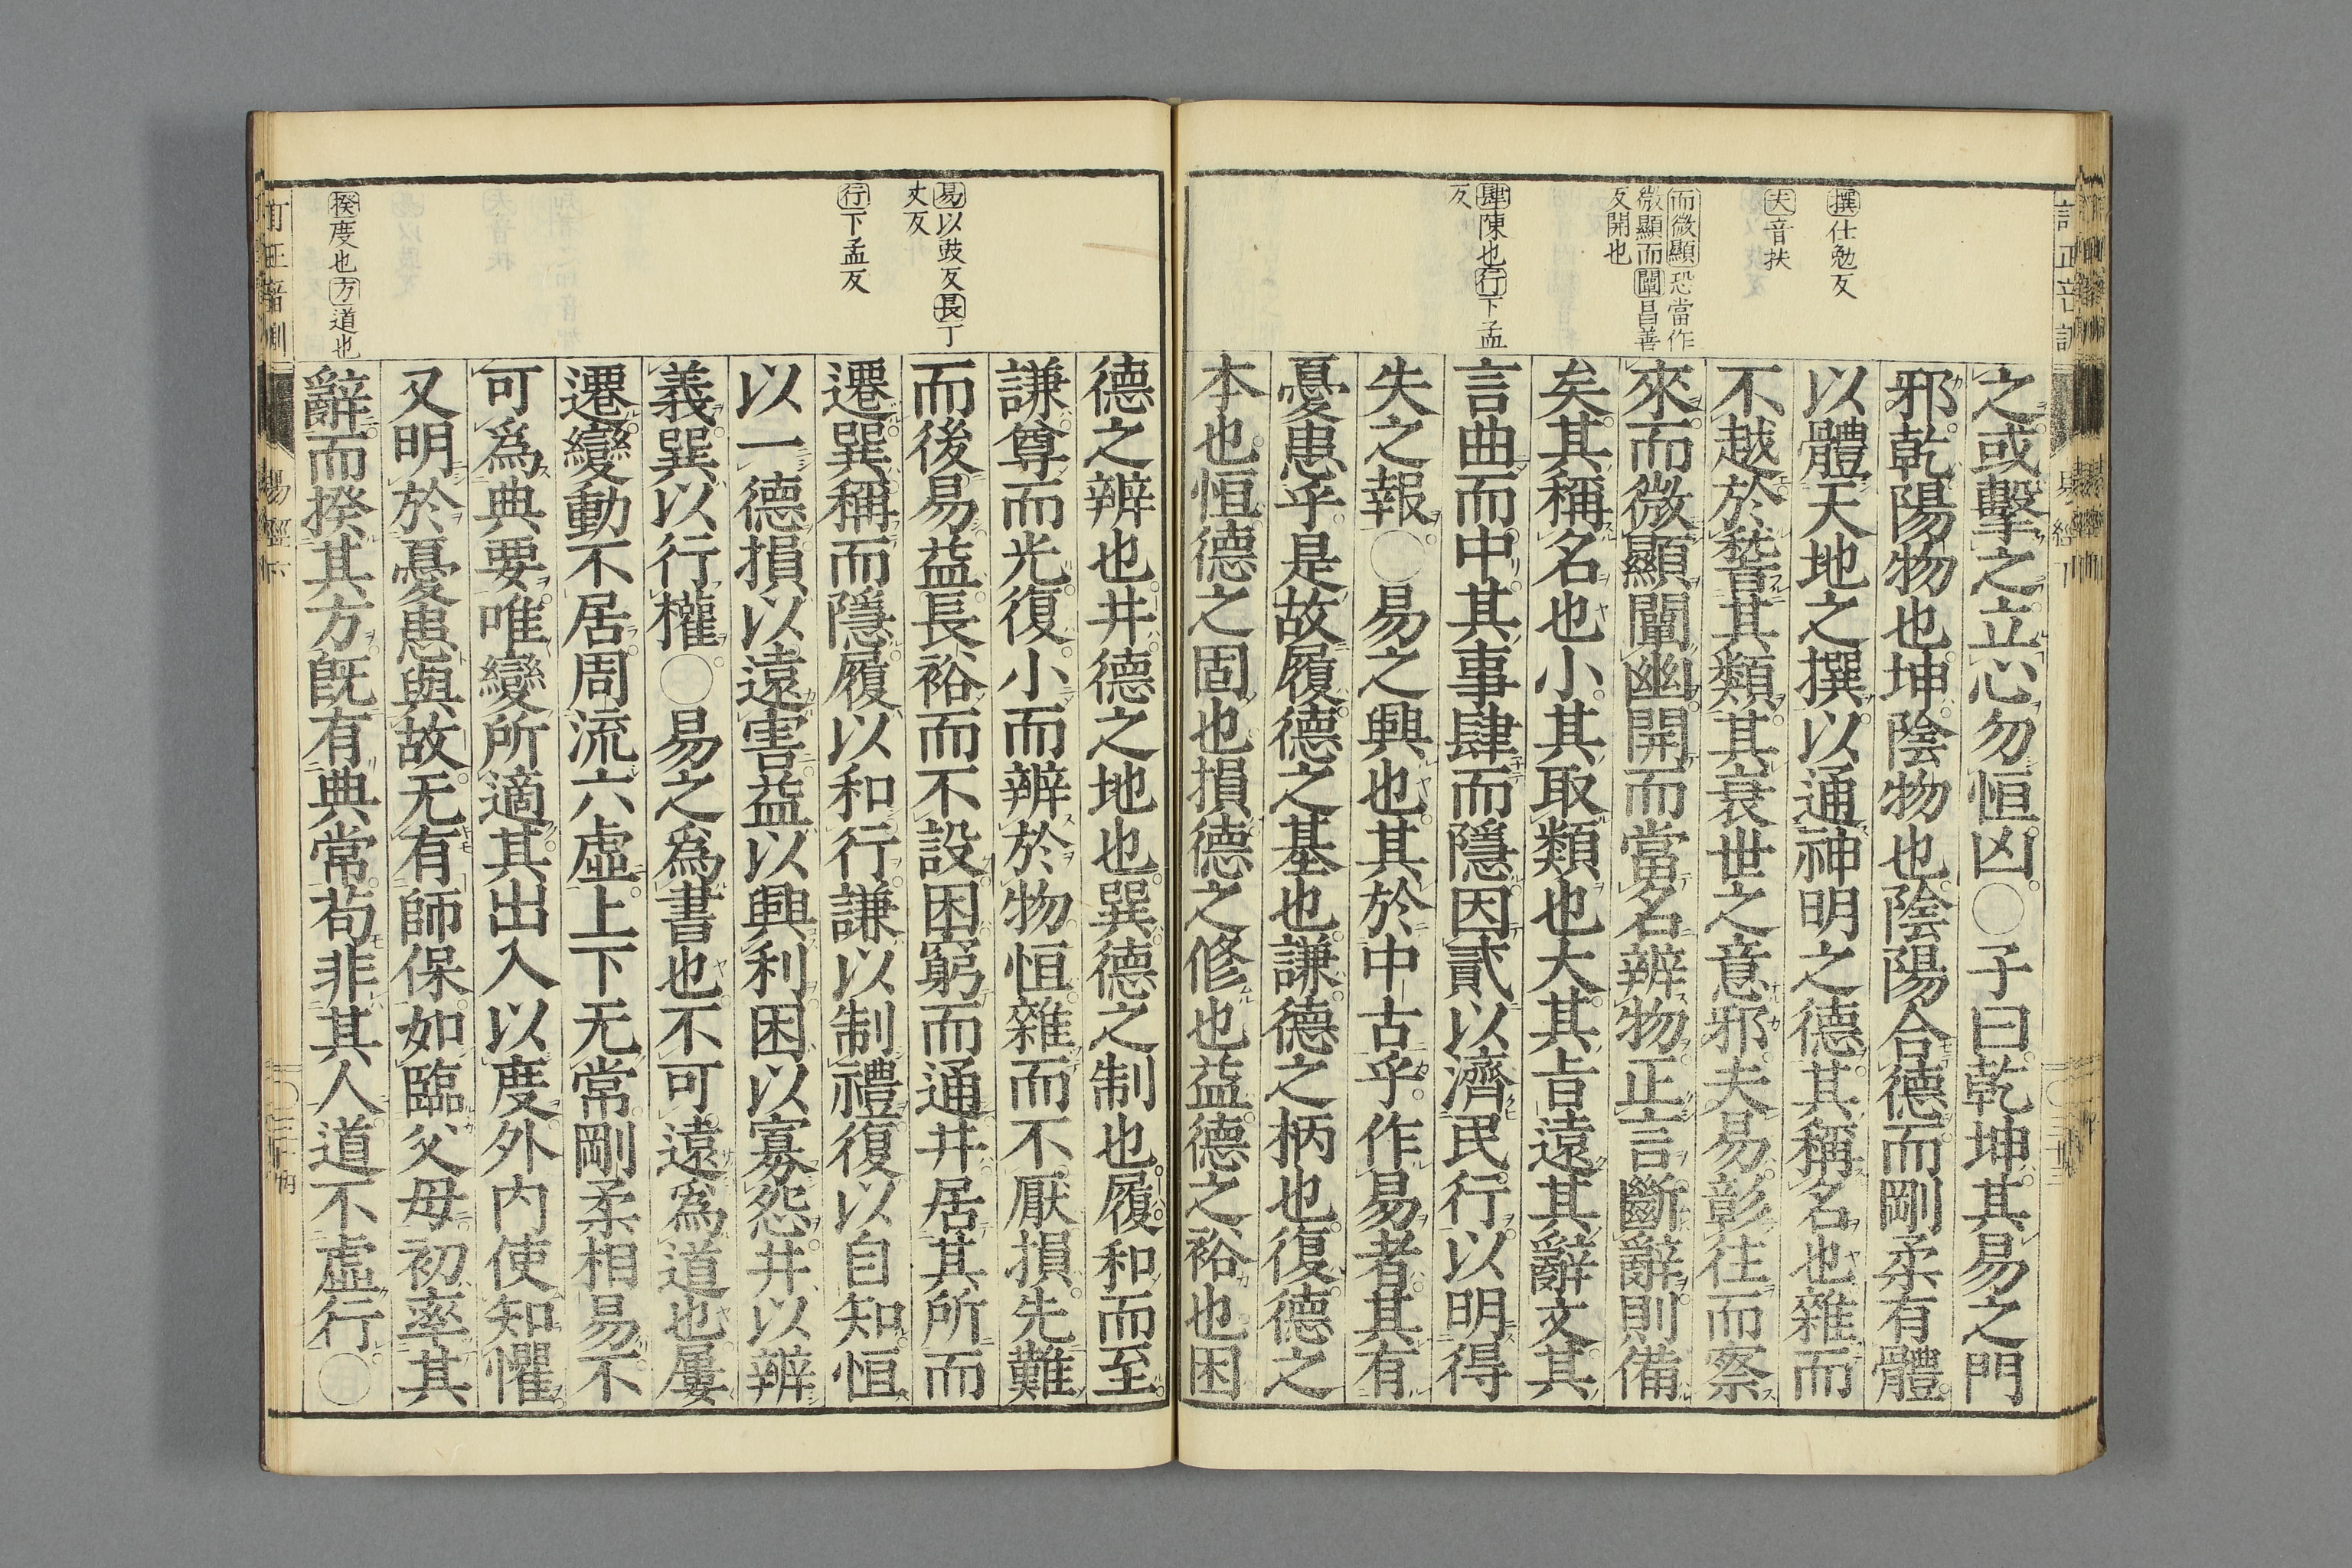 撰仕勉反
夫音扶
而微顯恐當作
微顯而闡昌善
反開也
肆陳也行下孟
反
之或擊之立心勿恒凶〇子曰乾坤其易之門
邪乾陽物也坤陰物也陰陽合德而剛柔有體
以體天地之撰以通神明之德其稱名也雜而
不越於稽其類其衰世之意邪夫易彰往而察
來而微顯闡幽開而當名辨物正言斷辭則備
矣其稱名也小其取類也大其旨遠其辭文其
言曲而中其事肆而隱因貳以濟民行以明得
失之報〇易之興也其於中古乎作易者其有
憂患乎是故履德之基也謙德之柄也復德之
本也恒德之固也損德之修也益德之裕也困
易以豉反長丁
丈反
行下孟反
揆度也方道也
德之辨也井德之地也巽德之制也履和而至
謙尊而光復小而辨於物恒雜而不厭損先難
而後易益長裕而不設困窮而通井居其所而
遷巽稱而隱履以和行謙以制禮復以自知恒
以一德損以遠害益以興利困以寡怨井以辨
義巽以行權〇易之爲書也不可遠爲道也屢
遷變動不居周流六虛上下无常剛柔相易不
可爲典要唯變所適其出入以度外內使知懼
又明於憂患與故无有師保如臨父母初率其
辭而揆其方旣有典常苟非其人道不虛行〇